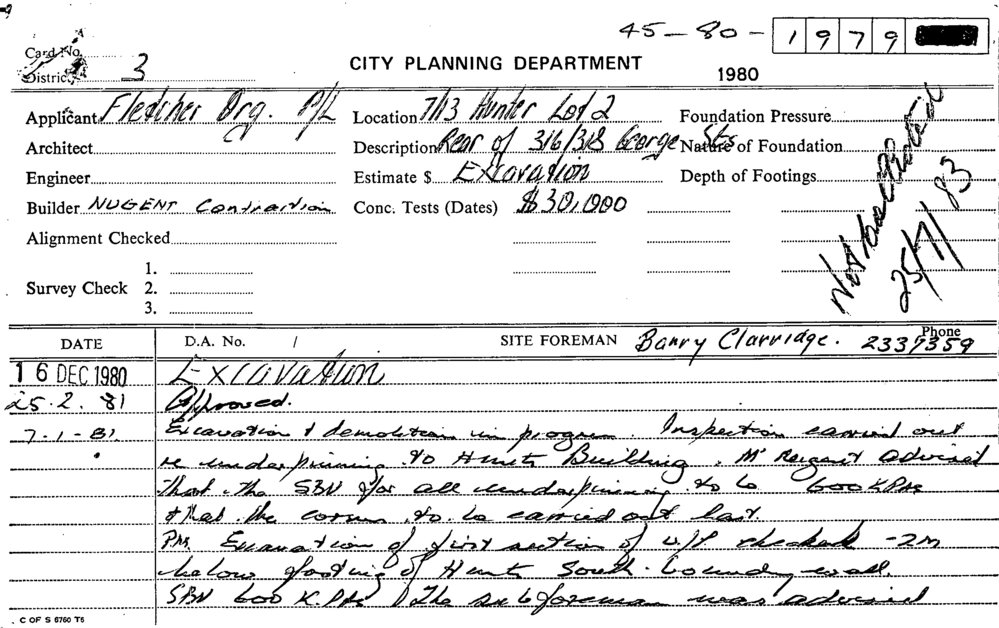 45-80- 1 9 7 9
Card No.
District 3
CITY PLANNING DEPARTMENT
1980
Applicant Fletcher Org. P/L
Location 7/13 Hunter Lot 2
Foundation Pressure
Architect
Description Rear of 316/318 George Sts
Nature of Foundation
Engineer
Estimate $ Excavation
Depth of Footings
Builder NUGENT Contraction
Conc. Tests (Dates) $30,000
Alignment Checked
Not
25/7/83
Survey Check
1.
2.
3.
DATE
D.A. No. /
SITE FOREMAN Barry Clarridge.
Phone 2337359
16 DEC 1980 Excavation
25.2.81 Approved.
7-1-81 Excavation & demolition in progress. Inspection carried out
re underpinning to Hunts Building. Mr advised
that the SBV for all underpinning to be 600 KPas
& that the corner to be carried out last.
PM Excavation of first section of u/p checked -2M
below footing of Hunts South boundry wall.
SBV 600 K.PAs The sub foreman was advised
C OF S 6760 T5